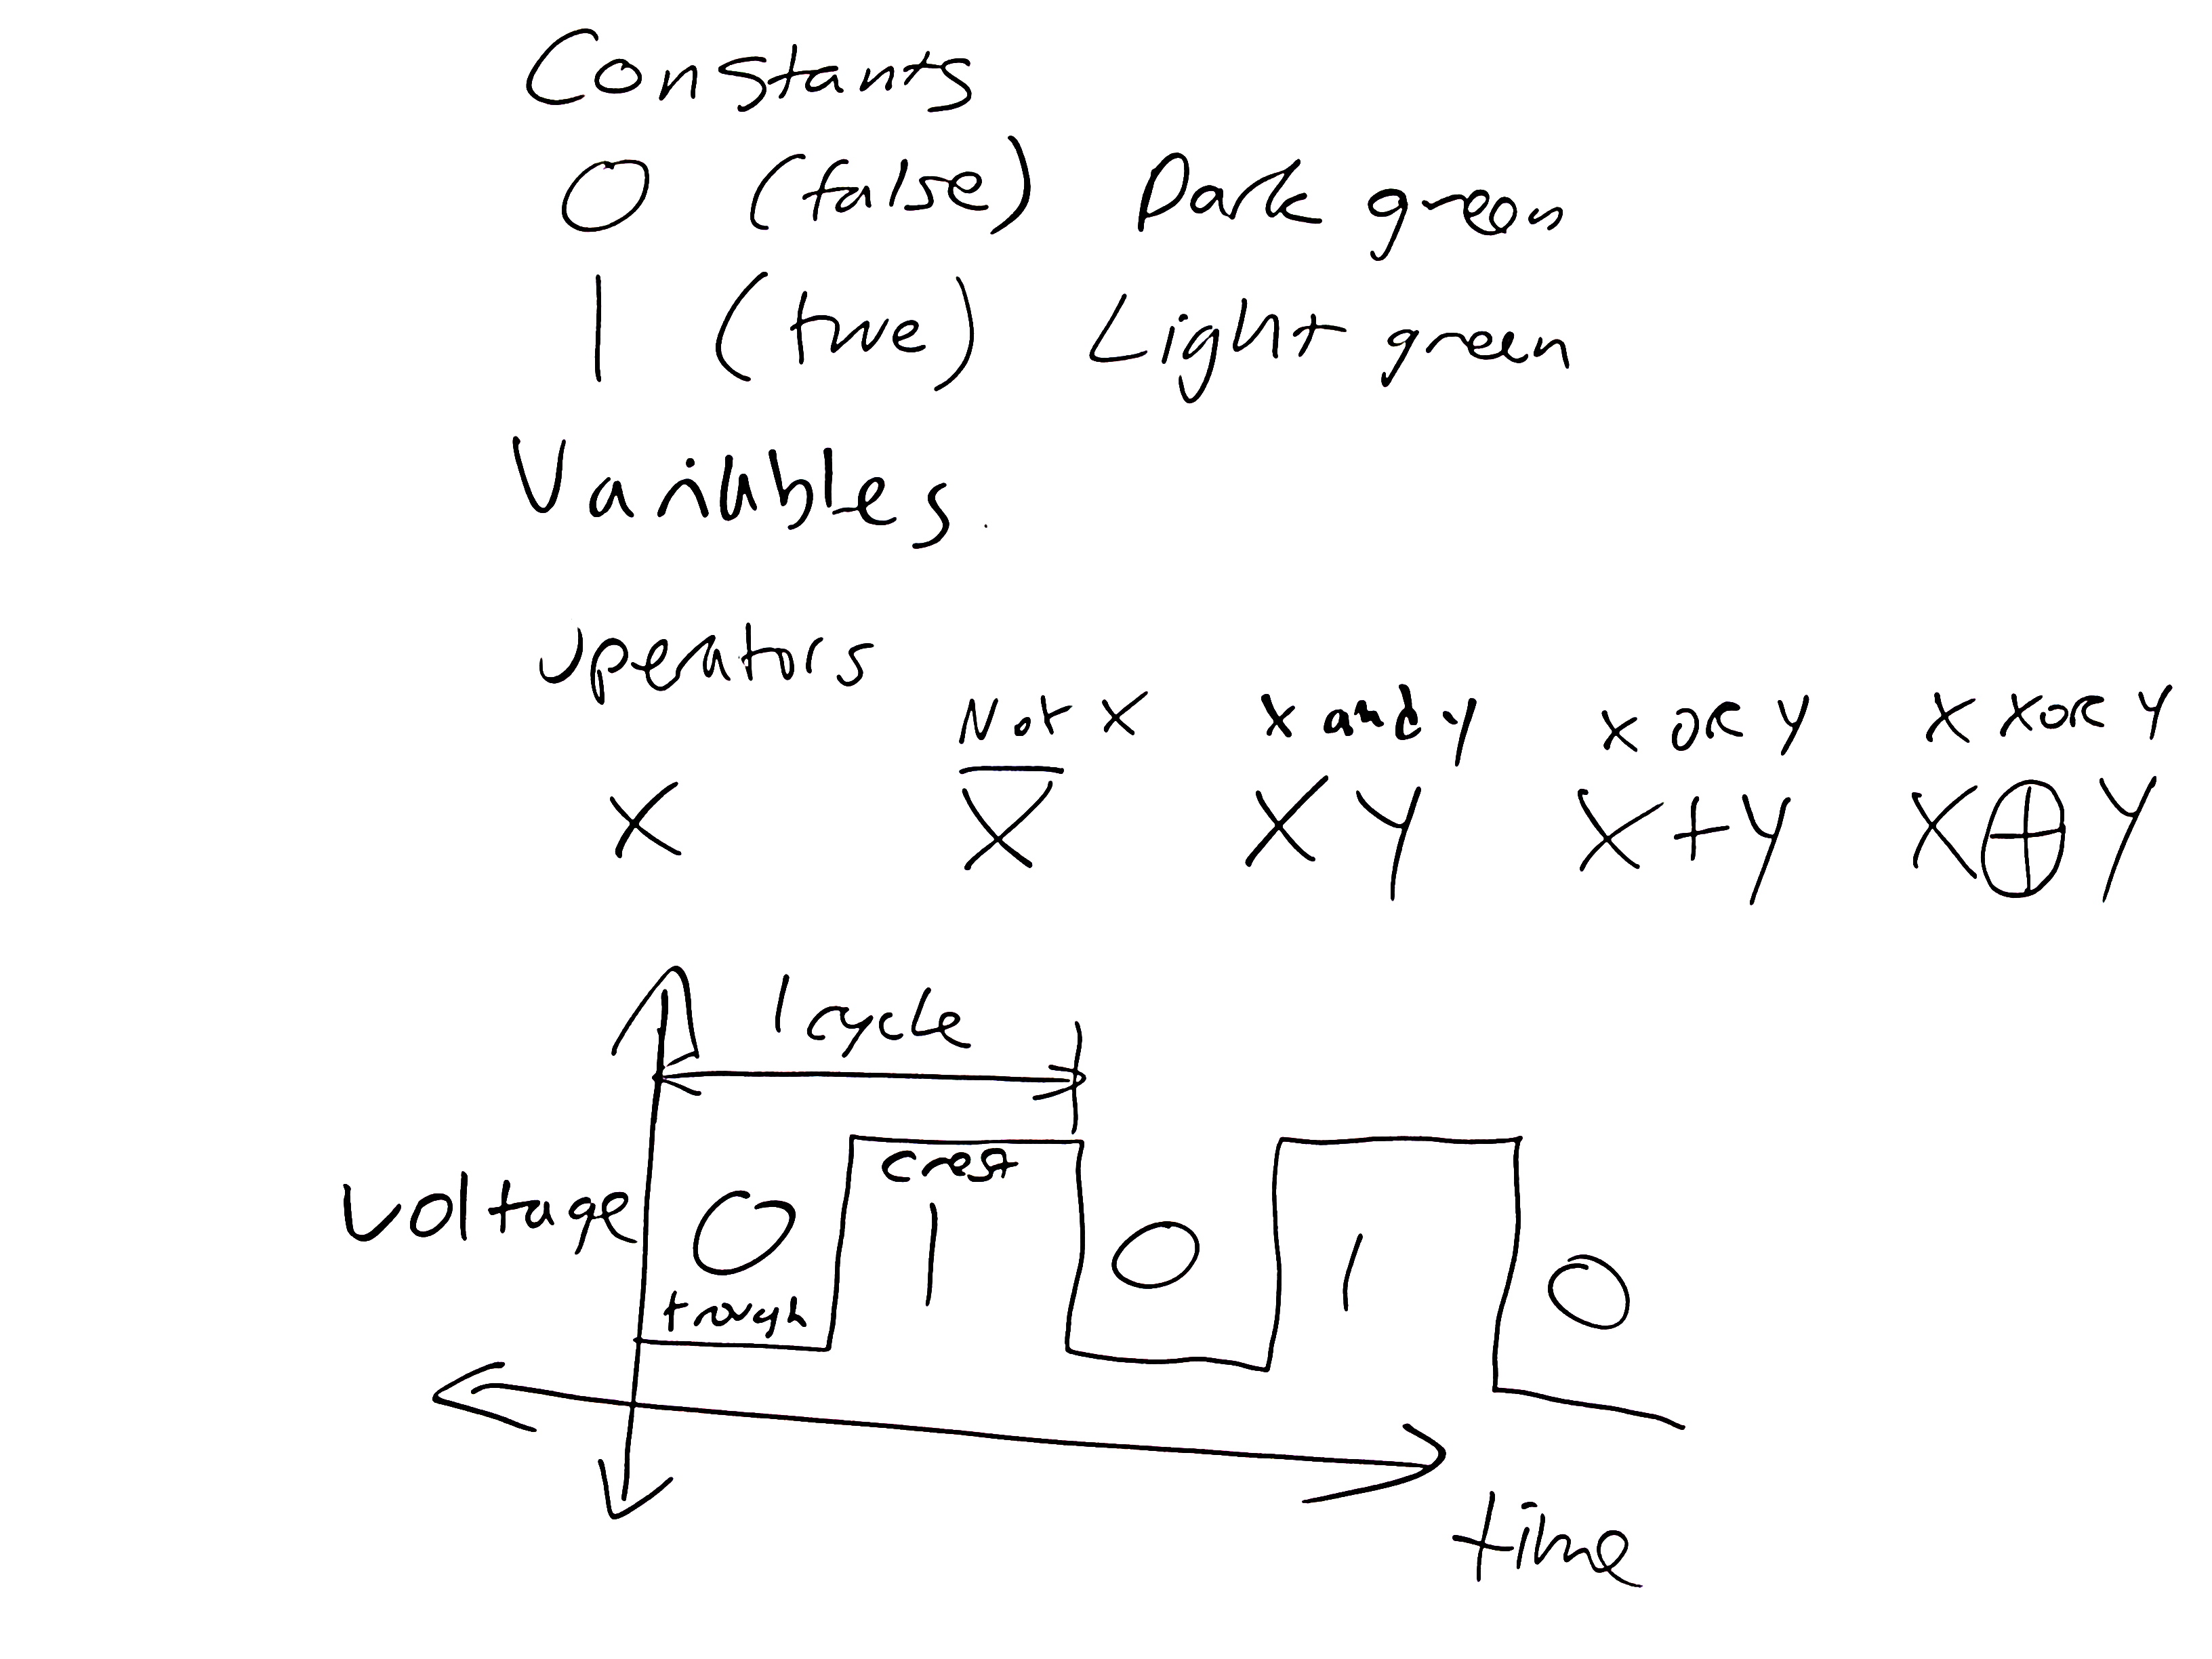 Constants
0 (false) Dark green
1 (true) Light green
Variables.
operators
Not x x and y x or y x xor y
X X̅ XY X+Y X⊕Y
1 cycle
crest
voltage 0 1 0 1 0
trough
time